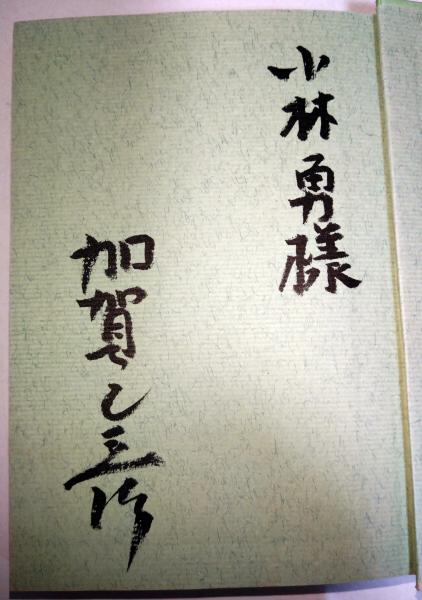 小林勇様
加賀乙彦